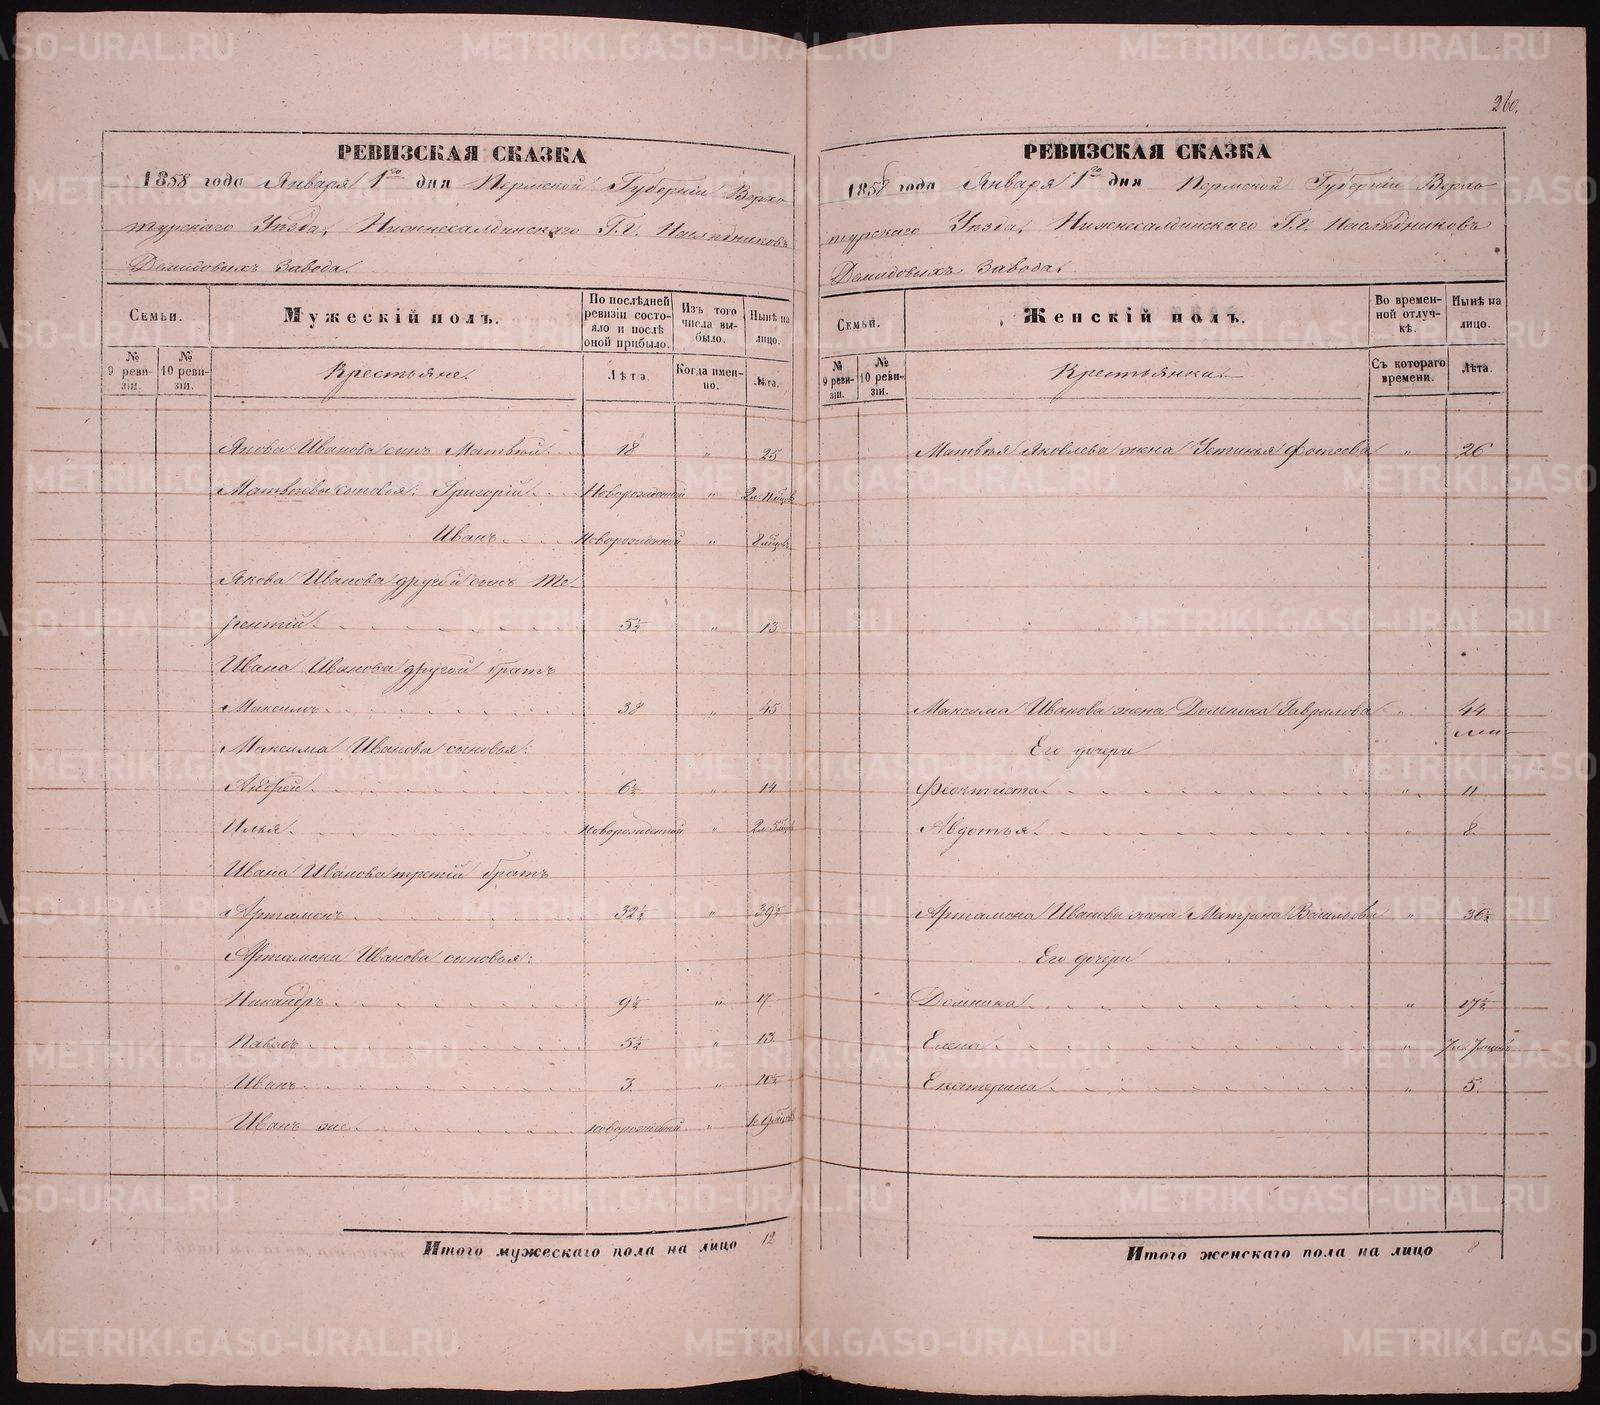 260.
РЕВИЗСКАЯ СКАЗКА
1858 года Января 1го дня Пермской Губерніи Верхо
турскаго Уѣзда, Нижнесалдинскаго Г.г. Наслѣдниковъ
Демидовыхъ Завода.
Семьи.
№ 9 ревизіи.
№ 10 ревизіи.
Мужескій полъ.
По послѣдней ревизіи состояло и послѣ оной прибыло.
Изъ того числа выбыло.
Нынѣ на лицо.
Крестьяне.
Лѣта
Когда именно.
Лѣта.
Якова Иванова сынъ Матвей. 18 " 25
Матвѣевы сыновья: Григорій. Новорожденной " 2л. 11 мѣцовъ
Иванъ. Новорожденной " 8 мѣцовъ
Якова Иванова другой сынъ Те-
рентій. 5½ " 13
Ивана Иванова другой братъ
Максимъ. 38 " 45
Максима Иванова сыновья:
Андрей. 6½ " 14
Илья. Новорожденной " 2л. 5 мѣц
Ивана Иванова третій братъ
Артамонъ. 32½ " 39½
Артамона Иванова сыновья:
Никандръ. 9½ " 17
Павелъ. 5½ " 13
Иванъ. 3. " 10½
Иванъ же. новорожденной "
Итого мужескаго пола на лицо 12
РЕВИЗСКАЯ СКАЗКА
1858 года Января 1го дня Пермской Губерніи Верхо
турскаго Уѣзда, Нижнесалдинскаго Г.г. Наслѣдниковъ
Демидовыхъ Завода.
Семьи.
№ 9 ревизіи.
№ 10 ревизіи.
Женскій полъ.
Во временной отлучкѣ.
Нынѣ на лицо.
Крестьянки.
Съ котораго времени.
Лѣта.
Матвѣя Яковлева жена Устинья Фотеева " 26
Максима Иванова жена Домника Гаврилова " 44
Его дочери
Феоктиста. " 11
Авдотья. " 8.
Артамона Иванова жена Матрена Васильева " 36½
Его дочери
Домника " 17½
Елена. " 7л. 7 мѣцовъ
Екатерина. " 5.
Итого женскаго пола на лицо 8
METRIKI.GASO-URAL.RU